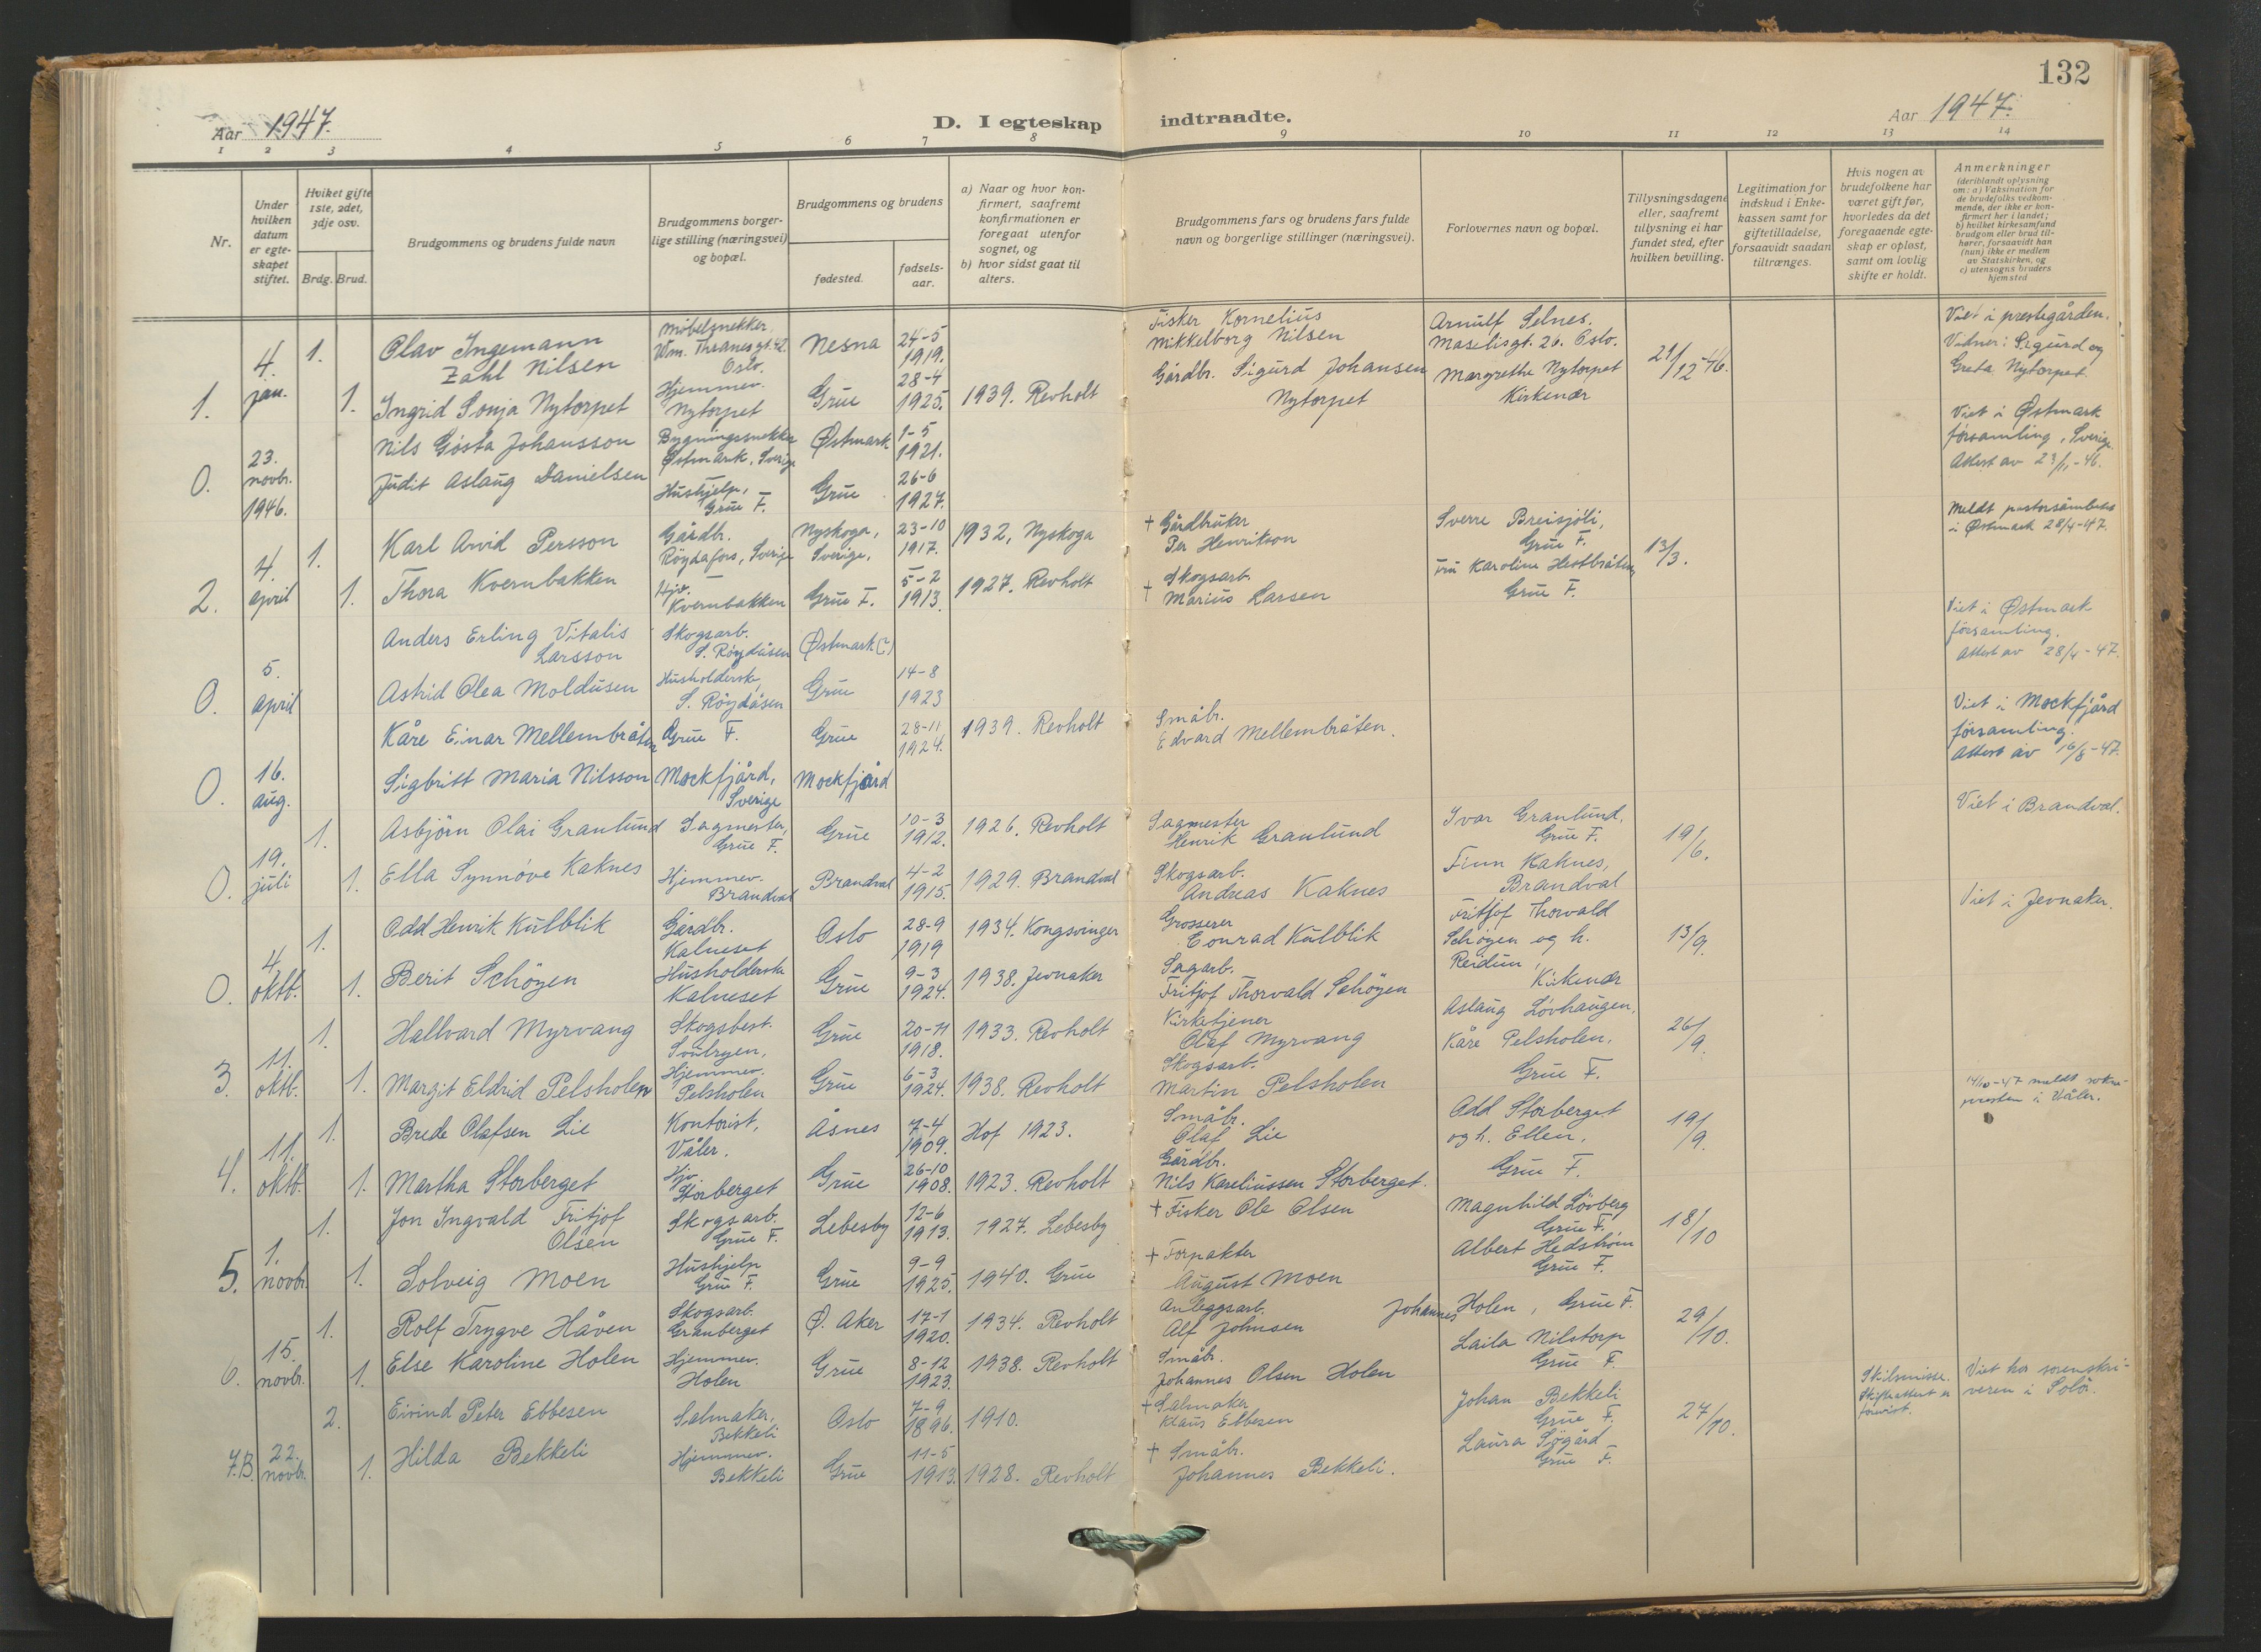 132
Aar 1947.
D. I egteskap indtraadte.
Aar 1947.
1 2 3 4 5 6 7 8 9 10 11 12 13 14
Nr.
Under hvilken datum er egteskapet stiftet.
Hvilket gifte 1ste, 2det, 3dje osv.
Brdg. Brud.
Brudgommens og brudens fulde navn
Brudgommens borgerlige stilling (næringsvei) og bopæl.
Brudgommens og brudens
fødested.
fødselsaar.
a) Naar og hvor konfirmert, saafremt konfirmationen er foregaat utenfor sognet, og
b) hvor sidst gaat til alters.
Brudgommens fars og brudens fars fulde navn og borgerlige stillinger (næringsvei).
Forlovernes navn og bopæl.
Tillysningsdagene eller, saafremt tillysning ei har fundet sted, efter hvilken bevilling.
Legitimation for indskud i Enkekassen samt for giftetilladelse, forsaavidt saadan tiltrænges.
Hvis nogen av brudefolkene har været gift før, hvorledes da det foregaaende egteskap er opløst, samt om lovlig skifte er holdt.
Anmerkninger (deriblandt oplysning om: a) Vaksination for de brudefolks vedkommende, der ikke er konfirmert her i landet; b) hvilket kirkesamfund brudgom eller brud tilhører, forsaavidt han (hun) ikke er medlem av Statskirken, og c) utensogns bruders hjemsted
1. 4. jan. 1. Olav Ingemann Zahl Nilsen Møbelsnekker. Wm. Thranesgt. 42. Oslo. Nesna 24-5 1919. Fisker Kornelius Mikkelborg Nilsen Arnulf Selnes. Maselisgt. 26. Oslo. 21/12-46. Viet i prestegården. Vidner: Sigurd og Greta Nytorpet.
1. Ingrid Sonja Nytorpet Hjemmev. Nytorpet Grue 28-4 1925. 1939. Revholt Gårdbr. Sigurd Johansen Nytorpet Margrethe Nytorpet Kirkenær
0. 23. novbr. 1946. Nils Gösta Johansson Bygningssnekker Østmark, Sverige Østmark 1-5 1921. Viet i Østmark församling, Sverige. Attest av 23/11-46.
Judit Aslaug Danielsen Hushjelp, Grue F. Grue 26-6 1927.
2. 4. april 1. Karl Arvid Persson Gårdbr. Röjdafors, Sverige Nyskoga, Sverige, 23-10 1917. 1932, Nyskoga + Gårdbruker Per Henrikson Sverre Breisjöli, Grue F. 13/3. Meldt pastorsämbetet i Østmark 28/4-47.
1. Thora Kvernbakken Hjv. Kvernbakken Grue F. 5-2 1913. 1927. Revholt + Skogsarb. Marius Larsen Fru Karoline Hestbråten Grue F.
0. 5. april Anders Erling Vitalis Larsson Skogsarb. S. Röjdåsen Østmark(?) Viet i Østmark församling. Attest av 28/4-47.
Astrid Olea Moldusen Husholderske, S. Röjdåsen Grue 14-8 1923
0. 16. aug. Kåre Einar Mellembråten Grue F. Grue 28-11 1924. 1939. Revholt Småbr. Edvard Mellembråten. Viet i Mockfjärd församling. Attest av 16/8-47.
Sigbritt Maria Nilsson Mockfjärd, Sverige Mockfjärd
0. 19. juli 1. Asbjörn Olai Granlund Sagmester, Grue F. Grue 10-3 1912. 1926. Revholt Sagmester Henrik Granlund Ivar Granlund, Grue F. 19/6. Viet i Brandval.
1. Ella Synnöve Kaknes Hjemmev. Brandval Brandval 4-2 1915. 1929. Brandval Skogsarb. Andreas Kaknes Finn Kaknes, Brandval
0. 4. oktb. 1. Odd Henrik Kulblik Gårdbr. Kalneset Oslo 28-9 1919 1934. Kongsvinger Grosserer Conrad Kulblik Fritjof Thorvald Schöyen og h. Reidun, Kirkenær 13/9. Viet i Jevnaker.
1. Berit Schöyen Husholderske Kalneset Grue 9-3 1924. 1938. Jevnaker Sagarb. Fritjof Thorvald Schöyen
3. 11. oktb. 1. Hallvard Myrvang Skogsbest. Grue 20-11 1918. 1933. Revholt Kirketjener Olaf Myrvang Aslaug Lövhaugen, Kåre Pelsholen, Grue F. 26/9.
1. Margit Eldrid Pelsholen Hjemmev. Pelsholen Grue 6-3 1924 1938. Revholt Skogsarb. Martin Pelsholen
4. 11. oktb. 1. Brede Olafsen Lie Kontorist, Våler. Åsnes 7-4 1909. Hof 1923. Småbr. Olaf Lie Odd Storberget og h. Ellen, Grue F. 19/9. 14/10-47 meldt soknepresten i Våler.
1. Martha Storberget Hjv. Storberget Grue 26-10 1908. 1923. Revholt Gårdbr. Nils Kareliussen Storberget.
5. 1. novbr. 1. Jon Ingvald Fritjof Olsen Skogsarb. Grue F. Lebesby 12-6 1913. 1927. Lebesby + Fisker Ole Olsen Magnhild Lövberg Grue F. 18/10
1. Solveig Moen Hushjelp Grue F. Grue 9-9 1925. 1940. Grue + Forpakter August Moen Albert Hedström Grue F.
6. 15. novbr. 1. Rolf Trygve Håven Skogsarb. Granberget Ø. Aker 17-1 1920. 1934. Revholt Anleggsarb. Alf Johnsen Johannes Holen, Grue F. 29/10.
1. Else Karoline Holen Hjemmev. Holen Grue 8-12 1923. 1938. Revholt Småbr. Johannes Olsen Holen Laila Nilstorp Grue F.
7.B. 22. novbr. 2. Eivind Peter Ebbesen Salmaker, Bekkeli Oslo 7-9 1896. 1910. + Salmaker Klaus Ebbesen Johan Bekkeli Grue F. 27/10. Skilsmisse. Skifteattest er forevist. Viet hos sorenskriveren i Solör.
1. Hilda Bekkeli Hjemmev. Bekkeli Grue 11-5 1913. 1928. Revholt + Småbr. Johannes Bekkeli. Laura Sjøgård Grue F.